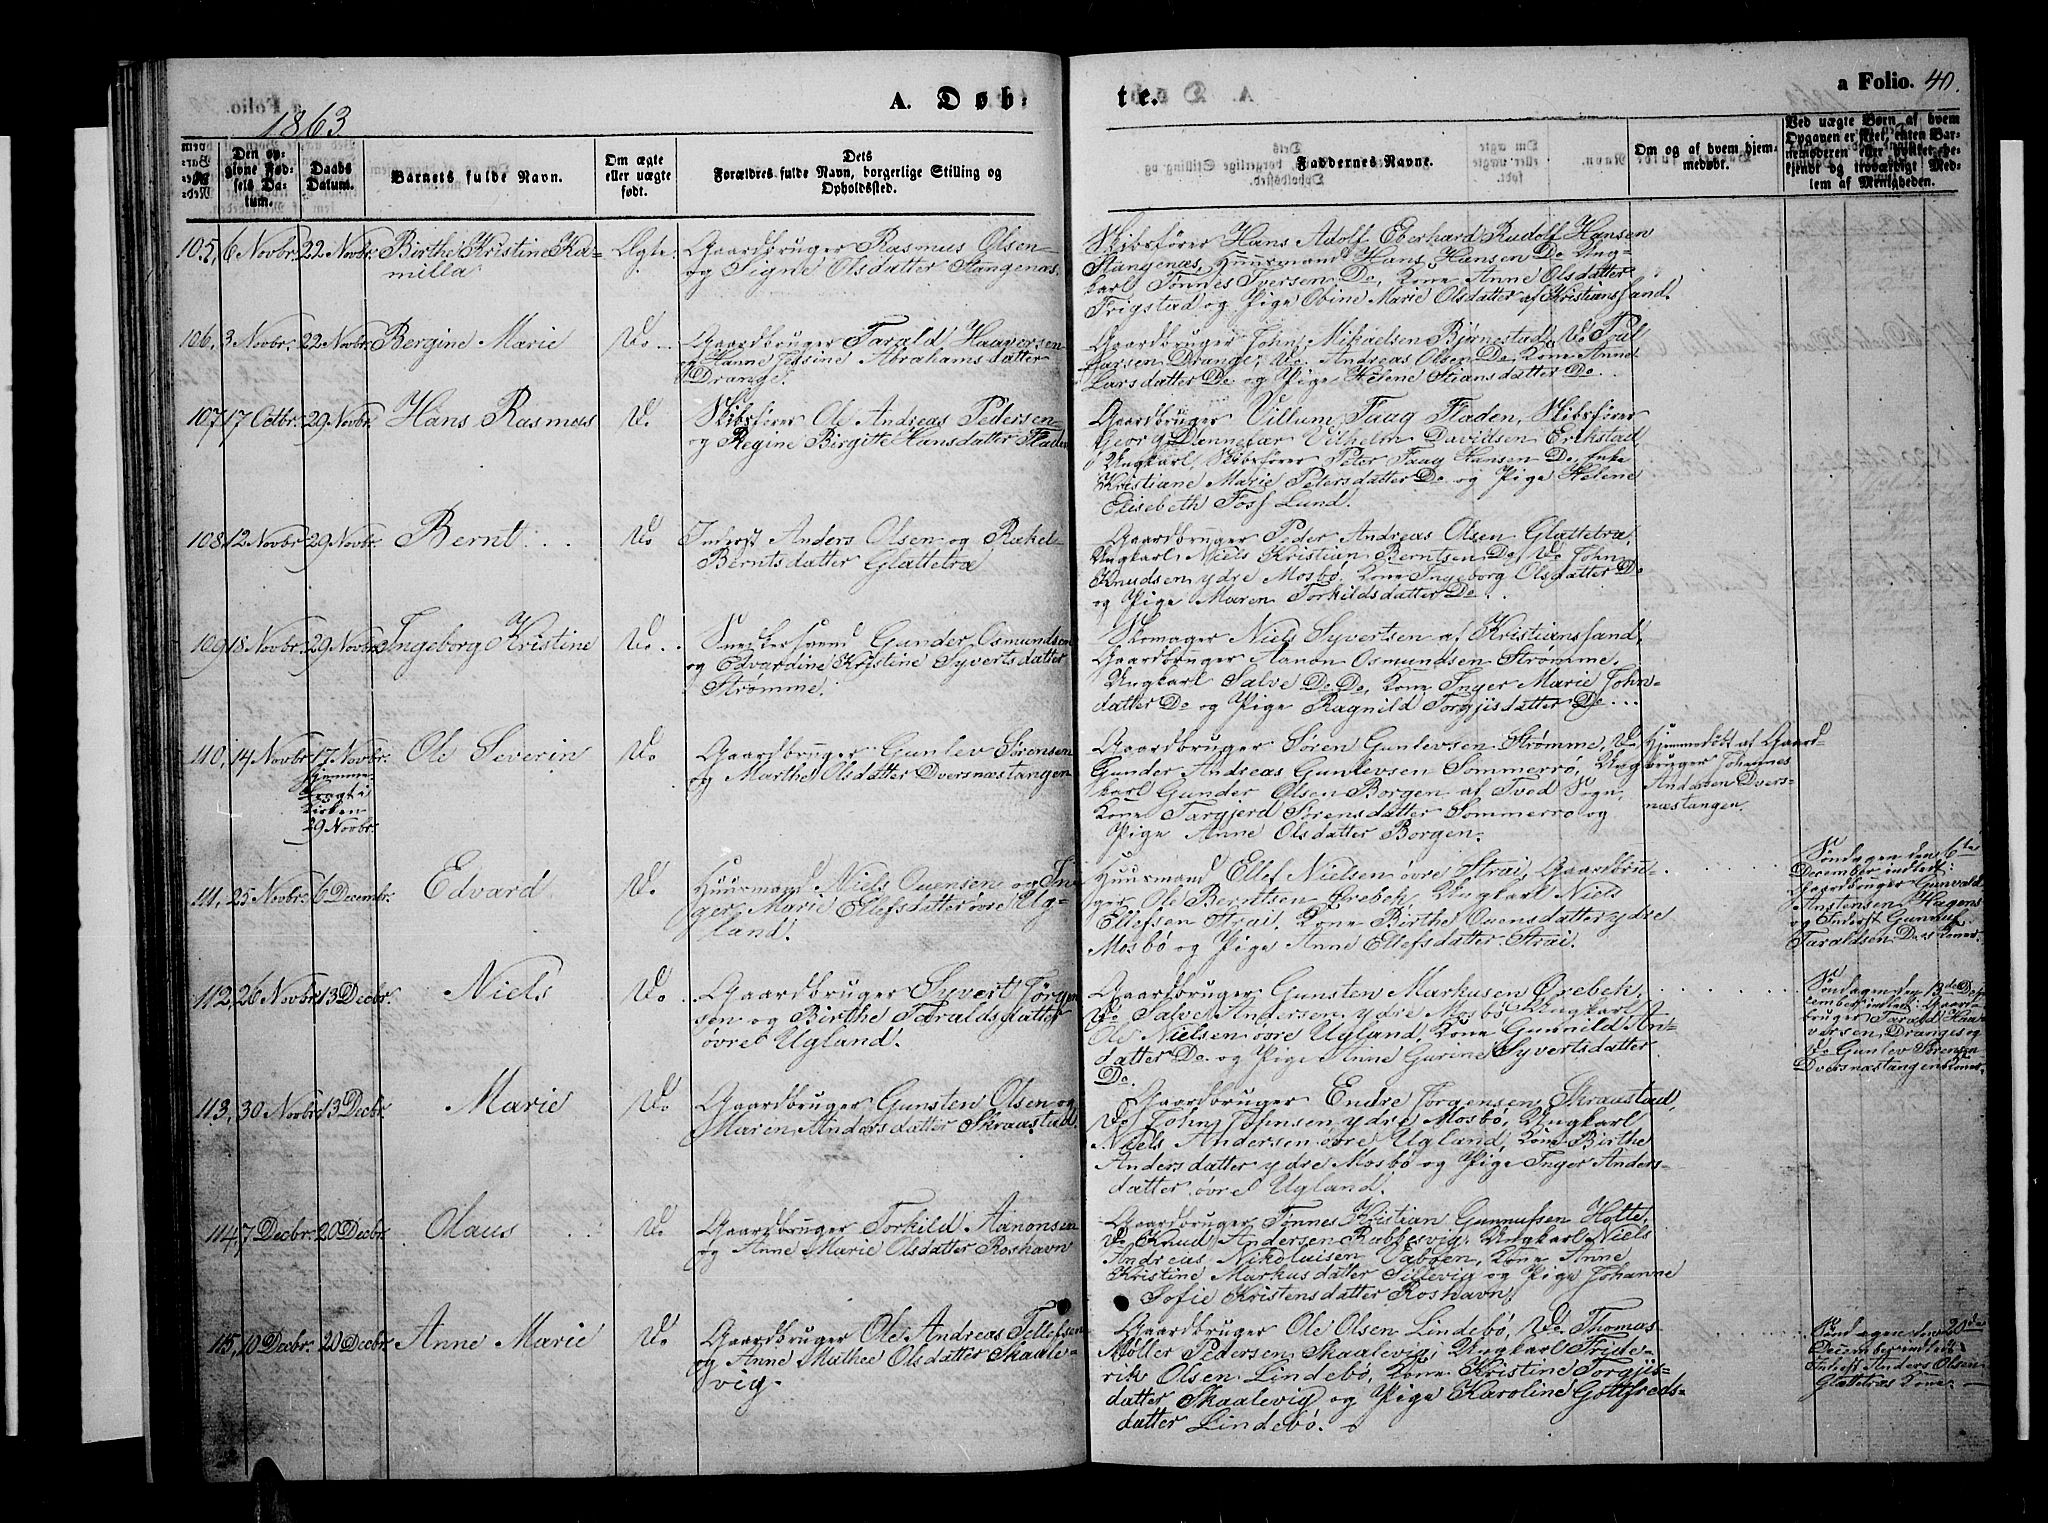 1863
A. Døb-
te.
a Folio. 40.
Den op-
givne Fød-
sels Da-
tum.
Daabs
Datum.
Barnets fulde Navn.
Om ægte
eller uægte
født.
Dets
Forældres fulde Navn, borgerlige Stilling og
Opholdssted.
Faddernes Navne.
Om og af hvem hjem-
medøbt.
Ved uægte Børn af hvem
Opgaven er skeet, enten Bar-
nemoderen eller hvilket be-
kjendt og troværdigt Med-
lem af Menigheden.
105, 6 Novbr. 22 Novbr. Birthe Kristine Ka-
milla
Ægte.
Gaardbruger Rasmus Olsen
og Signe Olsdatter Stangenæs.
Skibsfører Hans Adolf Eberhard Rudolf Hansen
Stangenæs, Huusmand Hans Hansen Do Ung-
karl Tønnes Iversen Do, Kone Anne Olsdatter
Frigstad og Pige Obine Marie Olsdatter af Kristianssand.
106, 3 Novbr. 22 Novbr. Bergine Marie
Do
Gaardbruger Tarald Haaversen
og Hanne Jedsine Abrahamsdatter
Drange.
Gaardbruger John Mikaelsen Bjørnestad, Do Poul
Larsen Drange, Do Andreas Olsen Do, Kone Anne
Larsdatter Do og Pige Helene Stiansdatter Do
107, 17 Octbr. 29 Novbr. Hans Rasmus
Do
Skibsfører Ole Andreas Pedersen
og Regine Birgitte Hansdatter Fladen
Gaardbruger Villum Taag Fladen, Skibsfører
Georg Dennefær Vilhelm Davidsen Erikstad,
Ungkarl, Skibsfører Peter Taag Hansen Do, Enke
Kristiane Marie Petersdatter Do og Pige Helene
Elisabeth Foss Lund.
108, 12 Novbr. 29 Novbr. Bernt
Do
Inderst Anders Olsen og Rakel
Berntsdatter Glattetræ
Gaardbruger Peder Andreas Olsen Glattetræ,
Ungkarl Niels Kristian Berntsen Do, Do John
Knudsen ydre Mosbø, Kone Ingeborg Olsdatter Do
og Pige Maren Torkildsdatter Do
109, 18 Novbr. 29 Novbr. Ingeborg Kristine
Do
Snedkersvend Gunder Osmundsen
og Edvardine Kristine Syvertsdatter
Strømme.
Skomager Niels Syvertsen af Kristianssand.
Gaardbruger Aanon Osmundsen Strømme,
Ungkarl Salve Do Do, Kone Inger Marie John-
datter Do og Pige Ragnild Torgjisdatter Do
110, 14 Novbr. 17 Novbr.
Hjemme
Bragt i
Kirken
29 Novbr.
Ole Severin
Do
Gaardbruger Gunlev Sørensen
og Marthe Olsdatter Dversnæstangen
Gaardbruger Søren Gunlevsen Strømme, Do
Gunder Andreas Gunlevsen Sommerrø, Ung
karl Gunder Olsen Borgen af Tved Sogn,
Kone Targjerd Sørensdatter Sommerro og
Pige Anne Olsdatter Borgen.
Hjemmedøbt af Gaard-
bruger Johannes
Andersen Dvers-
næstangen.
111, 25 Novbr. 6 Decembr. Edvard
Do
Huusmand Niels Ouensen og In-
ger Marie Ellefsdatter øvre Ug-
land.
Huusmand Ellef Nielsen øvre Strai, Gaardbru-
ger Ole Berntsen Ørebek, Ungkarl Niels
Ellefsen Strai, Kone Birthe Ovensdatter ydre
Mosbø og Pige Anne Ellefsdatter Strai.
Søndagen den 6te
December indled:
Gaardbruger Gunvald
Anstensen Hagens
og Inderst Gunnuf
Taraldsen Do's Koner.
112, 26 Novbr. 13 Decbr. Niels
Do
Gaardbruger Syvert Jørgen
søn og Birthe Taraldsdatter
øvre Ugland.
Gaardbruger Gunsten Markusen Ørebek,
Do Salve Andersen ydre Mosbø Ungkarl
Ole Nielsen øvre Ugland, Kone Gunnild An-
datter Do og Pige Anne Gurine Syvertsdatter
Do
Søndagen den 13de De-
cember indled: Gaard-
bruger Tarald Haa-
versen Dranges og
Do Gunlev Sørensen
Dversnæstangens Koner.
113, 30 Novbr. 13 Decbr. Marie
Do
Gaardbruger Gunsten Olsen og
Maren Andersdatter Skraastad
Gaardbruger Endre Jørgensen Skraastad,
Do John Johnsen ydre Mosbø, Ungkarl
Niels Andersen øvre Ugland, Kone Birthe
Andersdatter ydre Mosbø og Pige Inger Anders-
datter øvre Ugland.
114, 7 Decbr. 20 Decbr. Olaus
Do
Gaardbruger Torkild Aanonsen
og Anne Marie Olsdatter Roshavn
Gaardbruger Tønnes Kristian Gunnufsen Holte,
Do Knud Andersen Rabbesvig, Ungkarl Niels
Andreas Nikolaisen Vaboen, Kone Anne
Kristine Markusdatter Sillevig og Pige Johanne
Sofie Kristensdatter Roshavn
115, 10 Decbr. 20 Decbr. Anne Marie
Do
Gaardbruger Ole Andreas Tellefsen
og Anne Mathee Olsdatter Skaale-
vig.
Gaardbruger Ole Olsen Lindebø, Do Thomas
Møller Pedersen Skaalevig, Ungkarl Fride-
rik Olsen Lindebø, Kone Kristine Torgjis-
datter Skaalevig og Pige Karoline Gottfreds-
datter Lindebø.
Søndagen den 20de
December indled:
Inderst Anders Olsen
Glattetræs Kone.